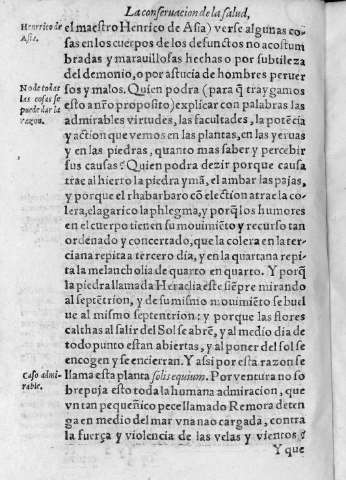 La conseruacion de la salud,
Henrrico de
Asia.
el maestro Henrico de Asia) verse algunas co-
sas en los cuerpos de los defunctos no acostum
bradas y marauillosas hechas o por subtileza
del demonio, o por astucia de hombres peruer
sos y malos. Quien podra (para q̃ traygamos
No de todas
las cosas se
puede dar la
razon.
esto a nr̃o proposito) explicar con palabras las
admirables virtudes, las facultades, la potẽcia
y action que vemos en las plantas, en las yeruas
y en las piedras, quanto mas saber y percebir
sus causas? Quien podra dezir porque causa
trae al hierro la piedra ymã, el ambar las pajas,
y porque el rhabarbaro cõ electiõ atrae la co-
lera, el agarico la phlegma, y porq̃ los humores
en el cuerpo tienen su mouimiẽto y recurso tan
ordenado y concertado, que la colera en la ter-
ciana repita a tercero dia, y en la quartana repi
ta la melancholia de quarto en quarto. Y porq̃
la piedra llamada Heraclia este siẽpre mirando
al septẽtrion, y de su mismo mouimiẽto se buel
ue al mismo septentrion: y porque las flores
calthas al salir del Sol se abrẽ, y al medio dia de
todo punto estan abiertas, y al poner del sol se
encogen y se encierran. Y assi por esta razon se
Caso admi-
rable.
llama esta planta solis equium. Por ventura no so
brepuja esto toda la humana admiracion, que
vn tan pequeñico pece llamado Remora deten
ga en medio del mar vna nao cargada, contra
la fuerça y violencia de las velas y vientos?
Y que